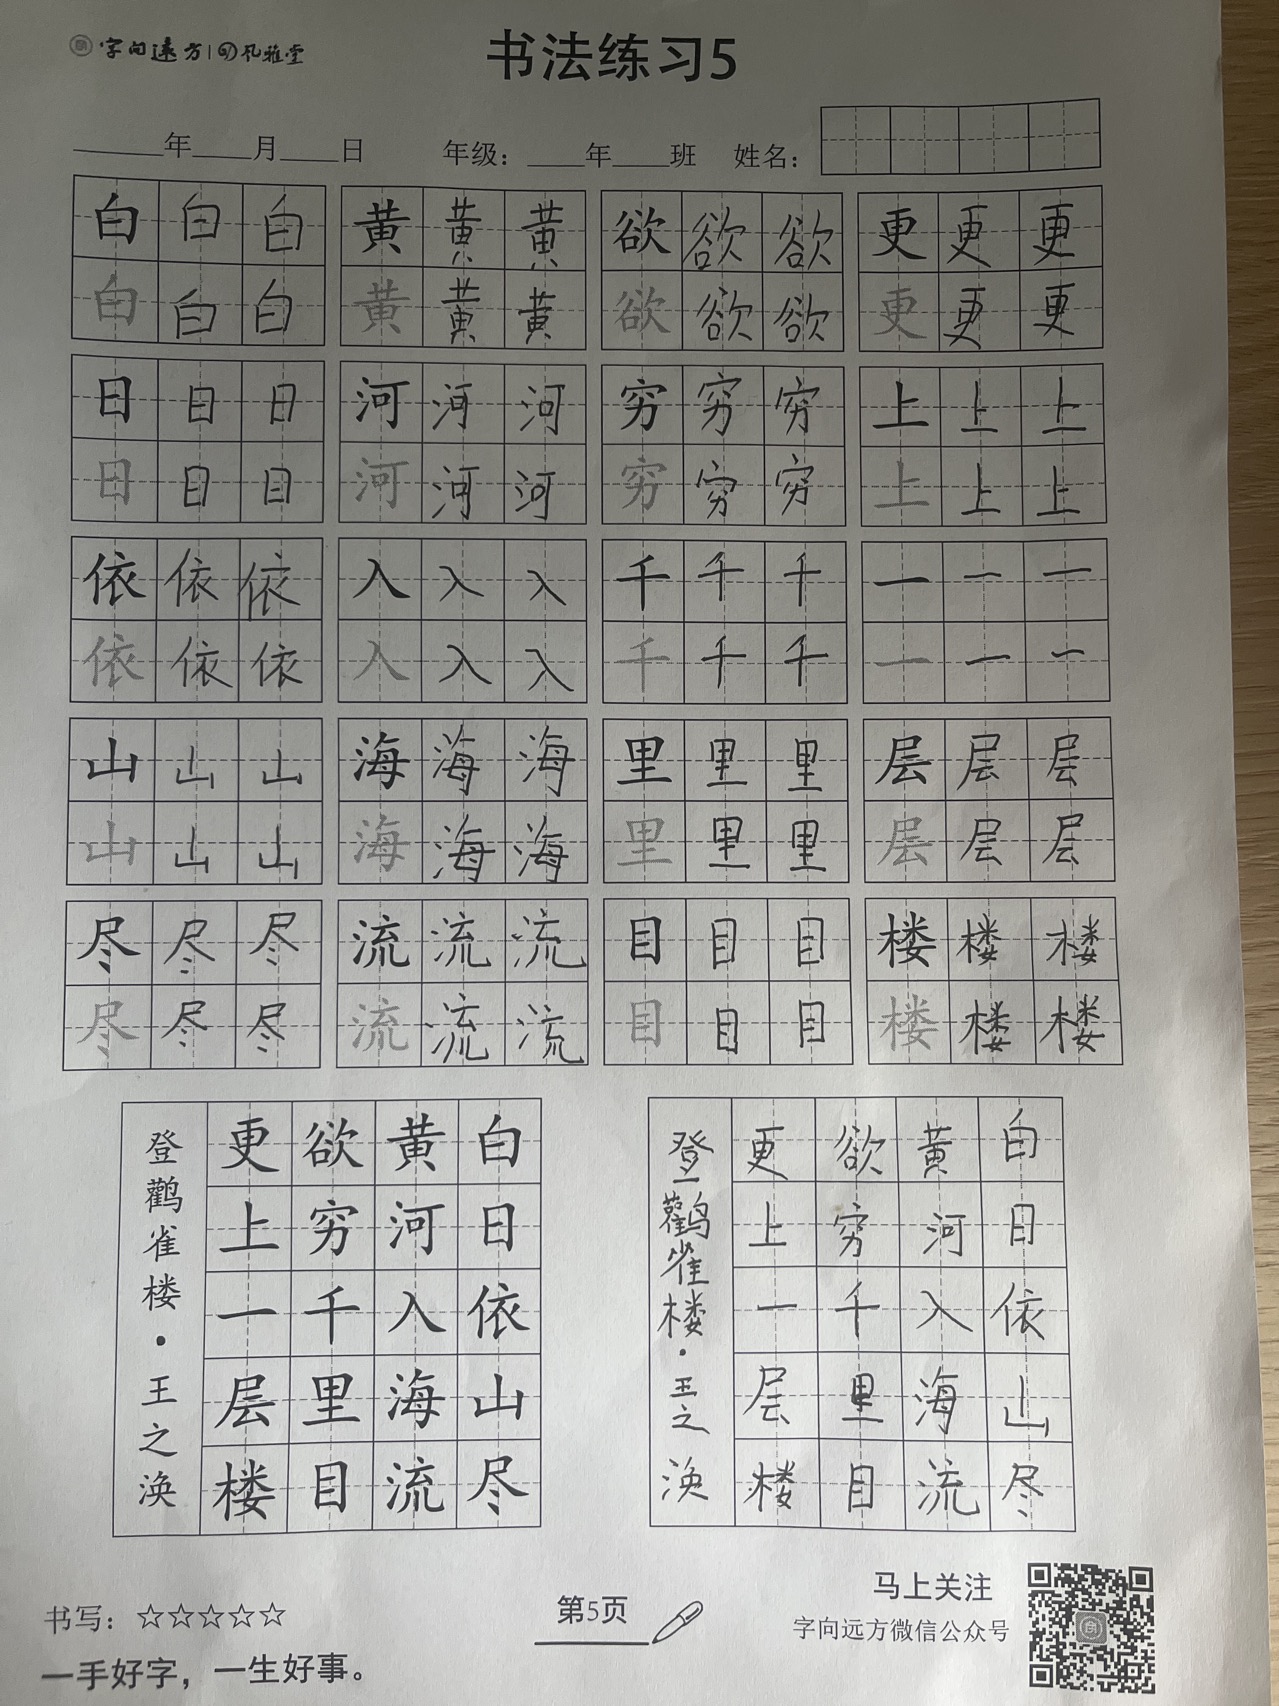 字向远方 | 风雅堂
书法练习5
____年____月____日 年级：____年____班 姓名：
白 白 白 黄 黄 黄 欲 欲 欲 更 更 更
白 白 白 黄 黄 黄 欲 欲 欲 更 更 更
日 日 日 河 河 河 穷 穷 穷 上 上 上
日 日 日 河 河 河 穷 穷 穷 上 上 上
依 依 依 入 入 入 千 千 千 一 一 一
依 依 依 入 入 入 千 千 千 一 一 一
山 山 山 海 海 海 里 里 里 层 层 层
山 山 山 海 海 海 里 里 里 层 层 层
尽 尽 尽 流 流 流 目 目 目 楼 楼 楼
尽 尽 尽 流 流 流 目 目 目 楼 楼 楼
白日依山尽
黄河入海流
欲穷千里目
更上一层楼
登鹳雀楼·王之涣
白日依山尽
黄河入海流
欲穷千里目
更上一层楼
登鹳雀楼·王之涣
书写：☆☆☆☆☆
一手好字，一生好事。
第5页
马上关注
字向远方微信公众号